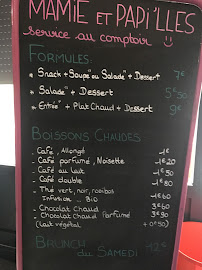 MAMIE ET PAPI'LLES
service au comptoir
FORMULES:
Snack + Soupe ou Salade + Dessert 7€
Salade + Dessert 5€50
Entrée + Plat Chaud + Dessert 9€
BOISSONS CHAUDES
- Café, Allongé -1€
- Café parfumé, Noisette -1€20
- Café au lait -1€50
- Café double -1€80
- Thé vert, noir, rooibos
Infusion BIO
- Chocolat Chaud
- Chocolat Chaud Parfumé
(Lait végétal +0€50)
BRUNCH du SAMEDI 12€